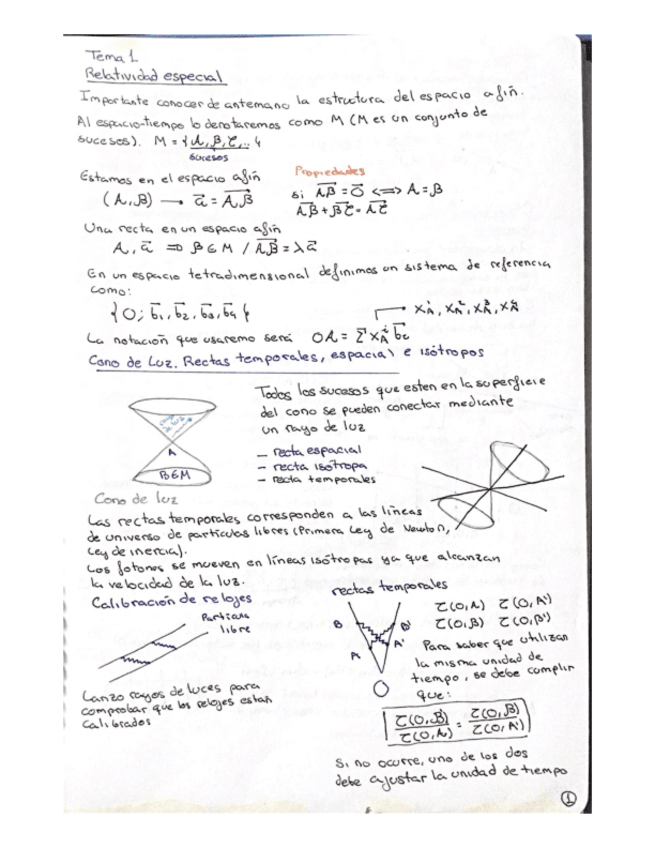 Tema 1
Relatividad especial
Importante conocer de antemano la estructura del espacio afín.
Al espacio-tiempo lo denotaremos como M (M es un conjunto de
sucesos). M = {A, B, C, ...}
sucesos
Estamos en el espacio afín
Propiedades
(A, B) → a⃗ = AB⃗
si AB⃗ = 0⃗ <=> A = B
AB⃗ + BC⃗ = AC⃗
Una recta en un espacio afín
A, a⃗ => B ∈ M / AB⃗ = λa⃗
En un espacio tetradimensional definimos un sistema de referencia
como:
{O; b⃗₁, b⃗₂, b⃗₃, b⃗₄}
x_A^1, x_A^2, x_A^3, x_A^4
La notación que usaremos será OA = Σ x_A^i b⃗i
Cono de Luz. Rectas temporales, espacial e isótropos
Todos los sucesos que esten en la superficie
del cono se pueden conectar mediante
un rayo de luz
A
B∈M
— recta espacial
— recta isótropa
— recta temporales
Cono de luz
Las rectas temporales corresponden a las líneas
de universo de partículas libres (Primera Ley de Newton,
Ley de inercia).
Los fotones se mueven en líneas isótropas ya que alcanzan
la velocidad de la luz.
Calibración de relojes
Partícula
libre
Lanzo rayos de luces para
comprobar que los relojes están
calibrados
rectas temporales
B B'
A A'
O
τ(O,A) τ(O,A')
τ(O,B) τ(O,B')
Para saber que utilizan
la misma unidad de
tiempo, se debe cumplir
que:
τ(O,B)/τ(O,A) = τ(O,B')/τ(O,A')
Si no ocurre, uno de los dos
debe ajustar la unidad de tiempo
1